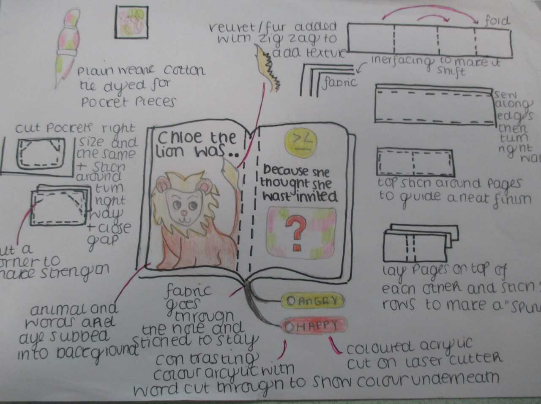 with zig zag to
add texture
fold
interfacing to make it
fabric
plain weave cotton
tie dyed for
pocket pieces
sew
along
edges
then
turn
right
cut pockets right
size and
the same
+ stich
around
turn
right
way
+ close
gap
Chloe the
lion was..
Because she
thought she
wasnt invited
?
top stich around pages
to guide a neat finish
cut a
corner to
make strength
lay pages on top of
each other and stich
rows to make a "spine
animal and
words and
subbed
into background
fabric
goes
through
the hole and
stiched to stay
ANGRY
HAPPY
contrasting
colour acrylic with
word cut through to show colour underneath
coloured acrylic
cut on laser cutter